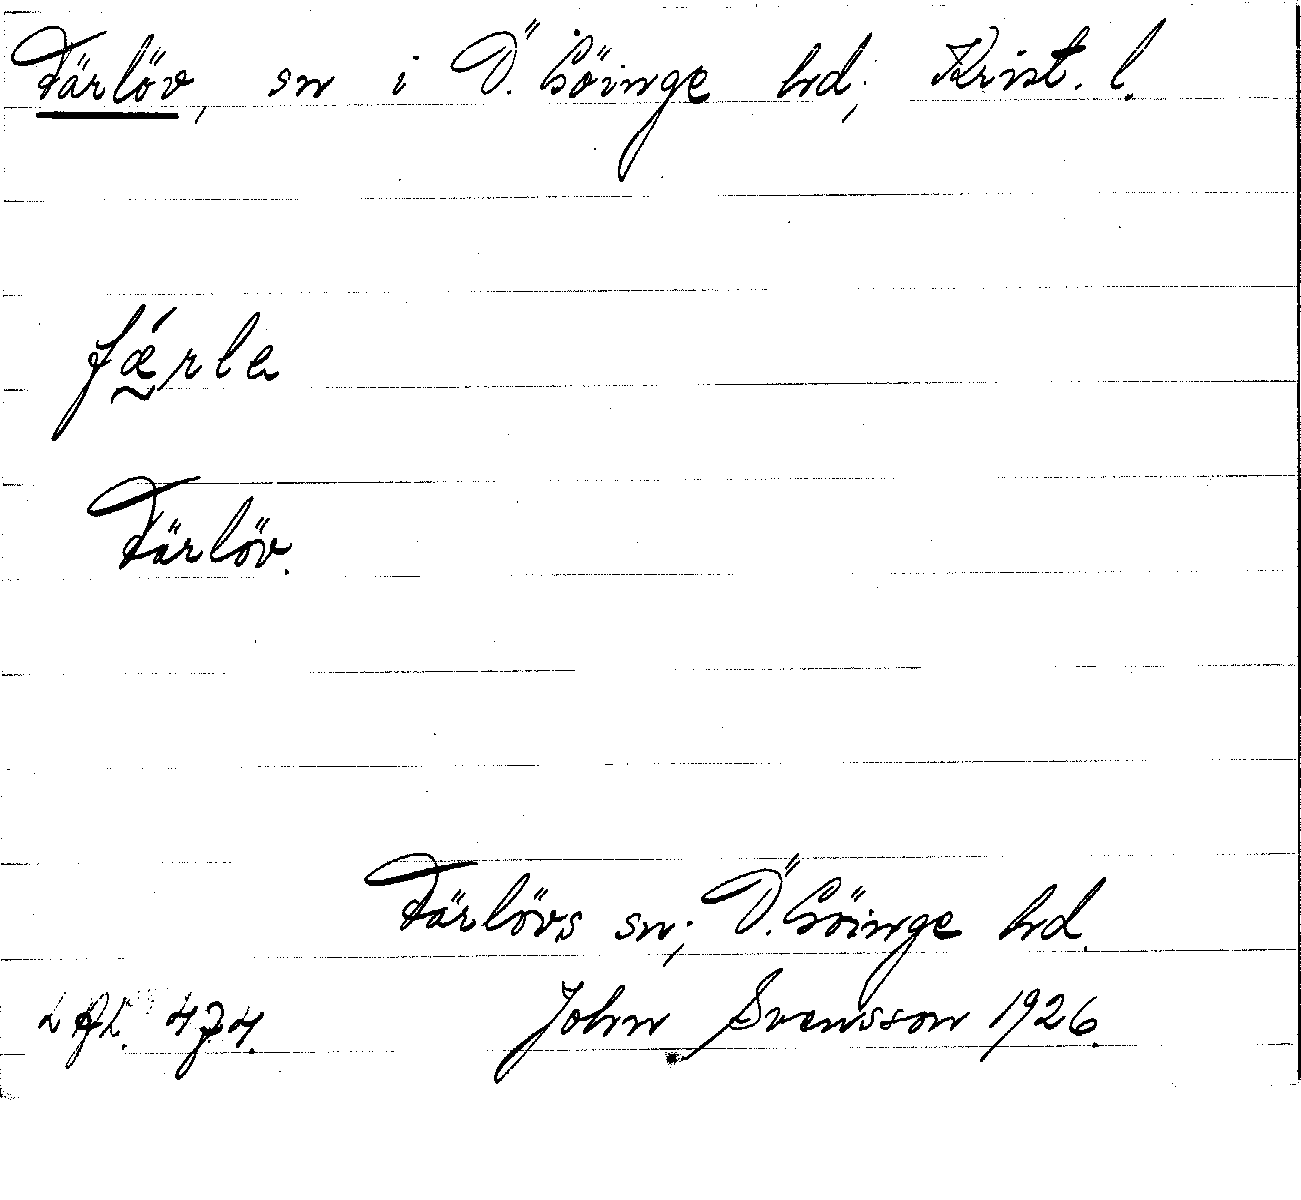 Färlöv, sn i Ö. Göinge hd; Krist. l.
fǽrla
Färlöv.
Färlövs sn; Ö. Göinge hd.
474. John Svensson 1926.